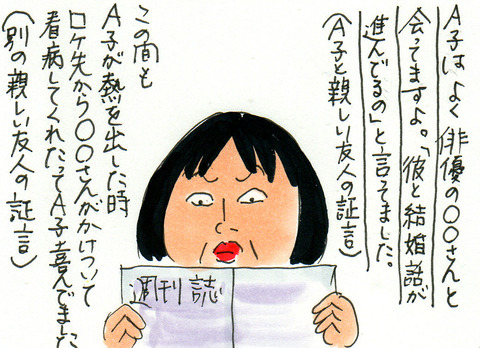 A子はよく俳優の〇〇さんと
会ってますよ。「彼と結婚話が
進んでるの」と言ってました。
(A子と親しい友人の証言)
この間も
A子が熱を出した時
ロケ先から〇〇さんがかけついて
看病してくれたってA子喜んでました
(別の親しい友人の証言)
週刊誌